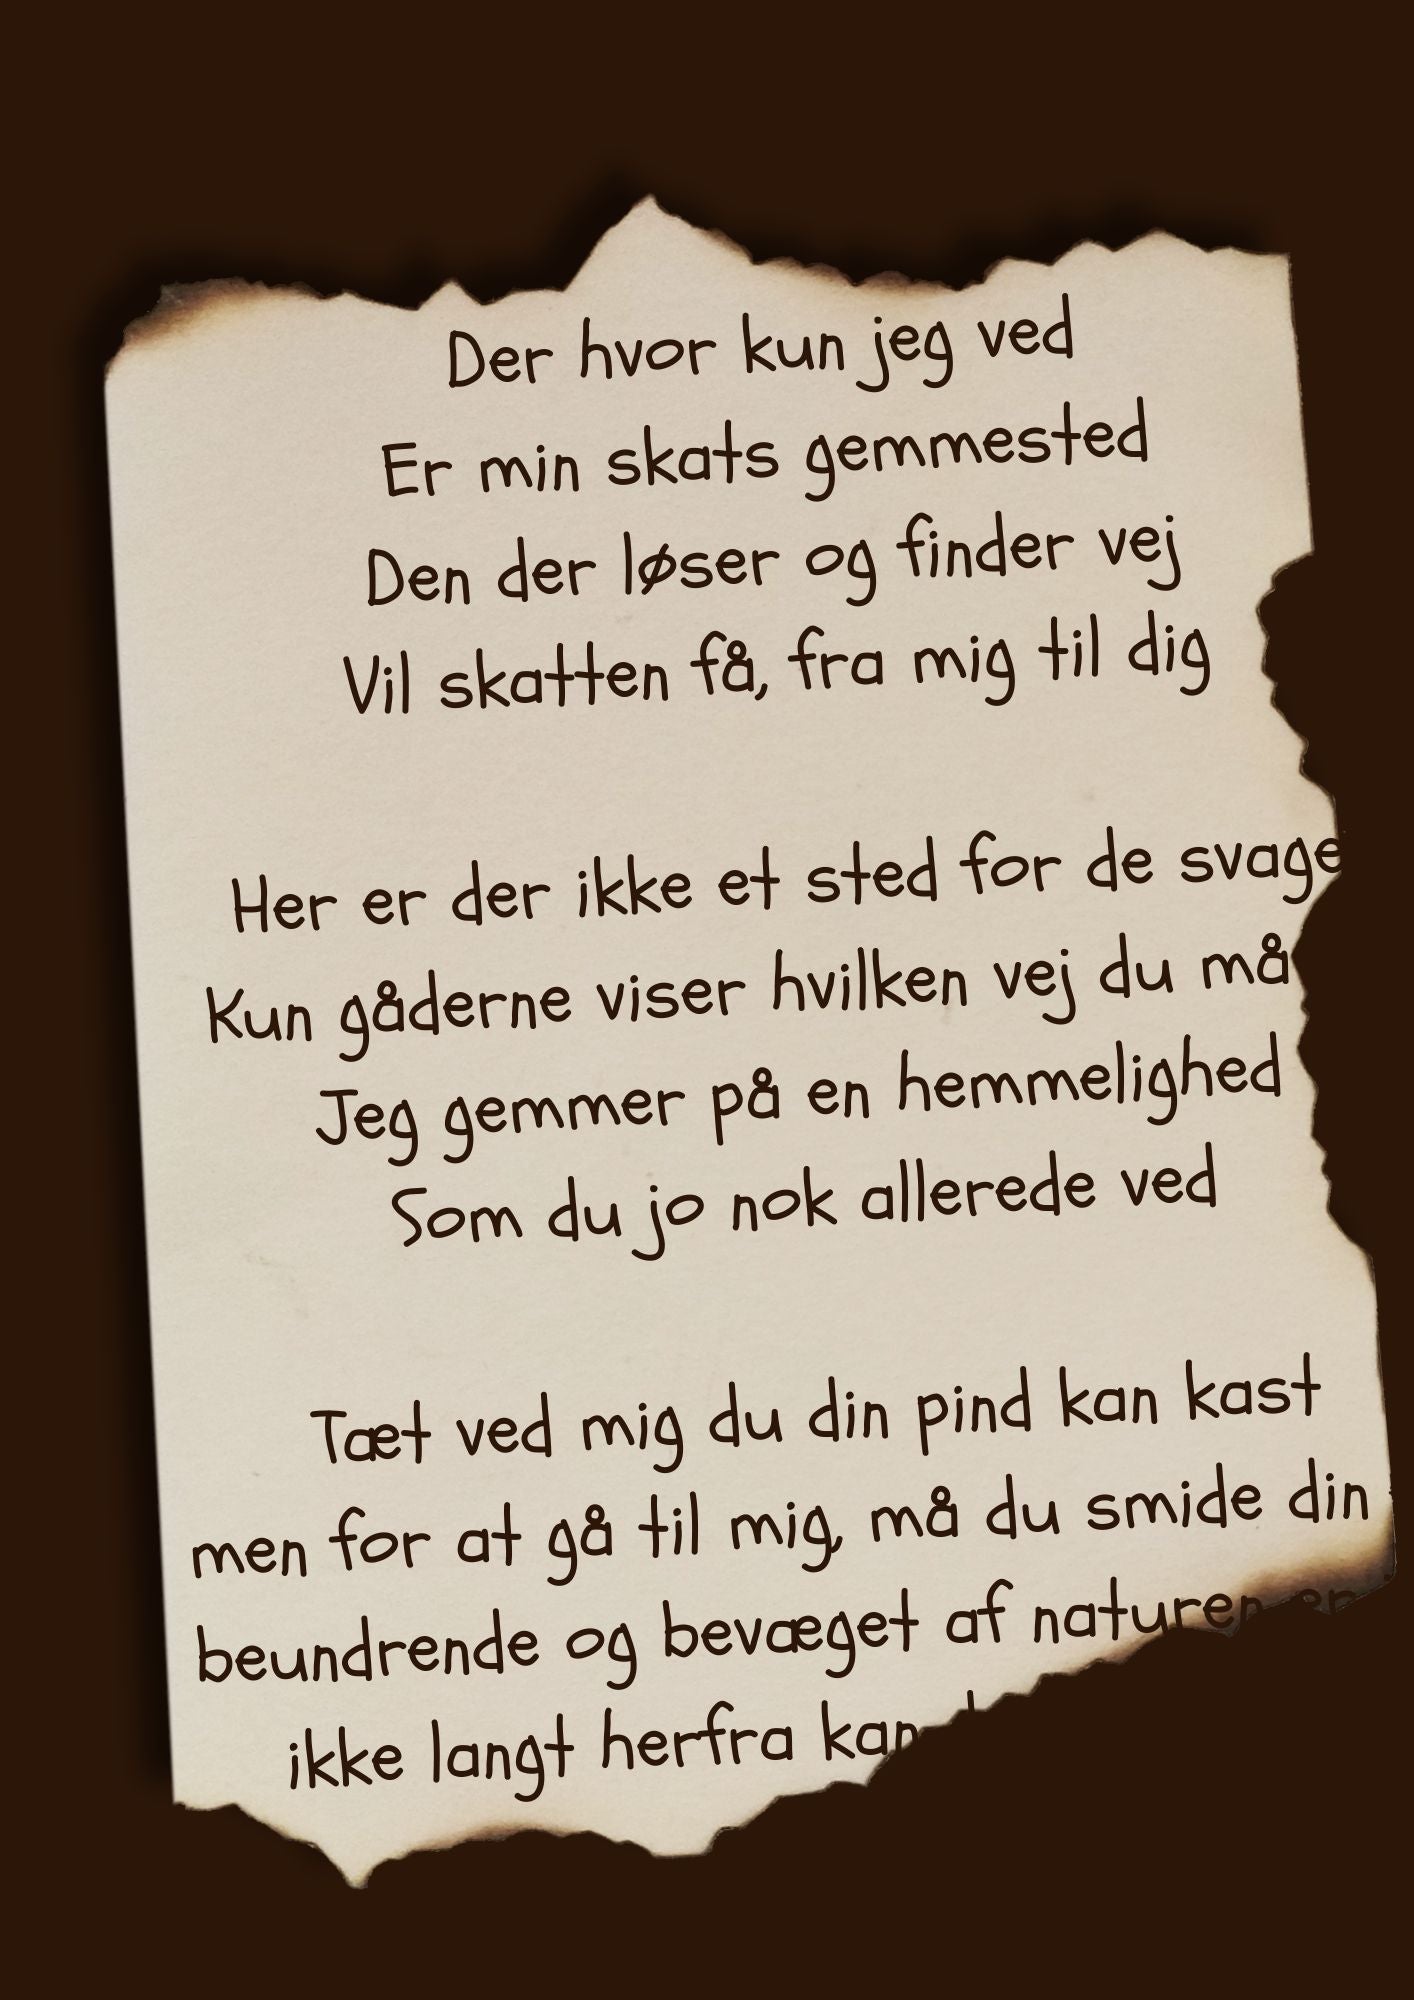 Der hvor kun jeg ved
Er min skats gemmested
Den der løser og finder vej
Vil skatten få, fra mig til dig
Her er der ikke et sted for de svage
Kun gåderne viser hvilken vej du må
Jeg gemmer på en hemmelighed
Som du jo nok allerede ved
Tæt ved mig du din pind kan kast
men for at gå til mig, må du smide din
beundrende og bevæget af naturen
ikke langt herfra kan